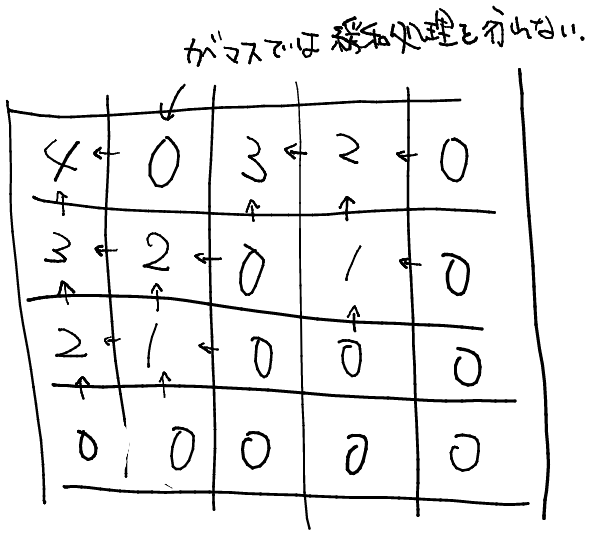 がマスでは 緩和処理を行わない.
4 ← 0 3 ← 2 ← 0
↑ ↑ ↑
3 ← 2 ← 0 1 ← 0
↑ ↑ ↑
2 ← 1 ← 0 0 0
↑ ↑
0 0 0 0 0